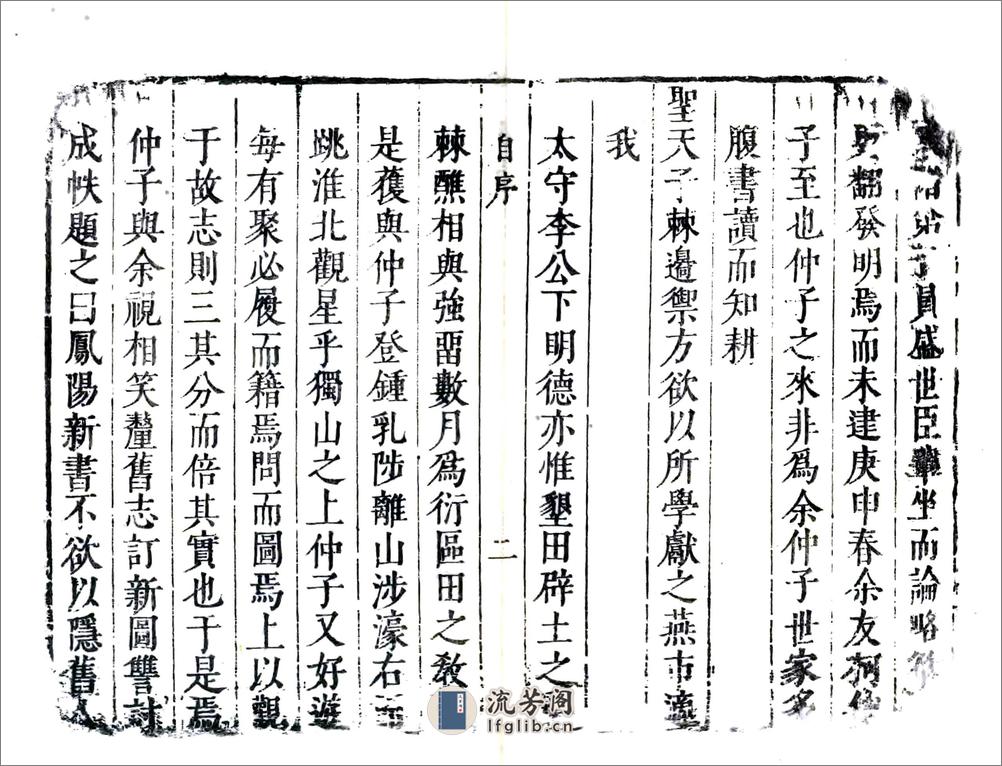 第子員盛世臣輩坐而論略
翻發明焉而未建庚申春余友柯仲
子至也仲子之來非爲余仲子世家多
腹書讀而知耕
聖天子棘邊禦方欲以所學獻之燕市適
我
太守李公下明德亦惟墾田辟土之
自序
二
棘醮相與強畱數月爲衍區田之教
是蒦與仲子登鍾乳陟離山涉濠右
跳淮北觀星乎獨山之上仲子又好遊
每有聚必履而籍焉問而圖焉上以觀
于故志則三其分而倍其實也于是焉
仲子與余視相笑釐舊志訂新圖讐討
成帙題之曰鳳陽新書不欲以隱舊人
流芳阁
lfglib.cn